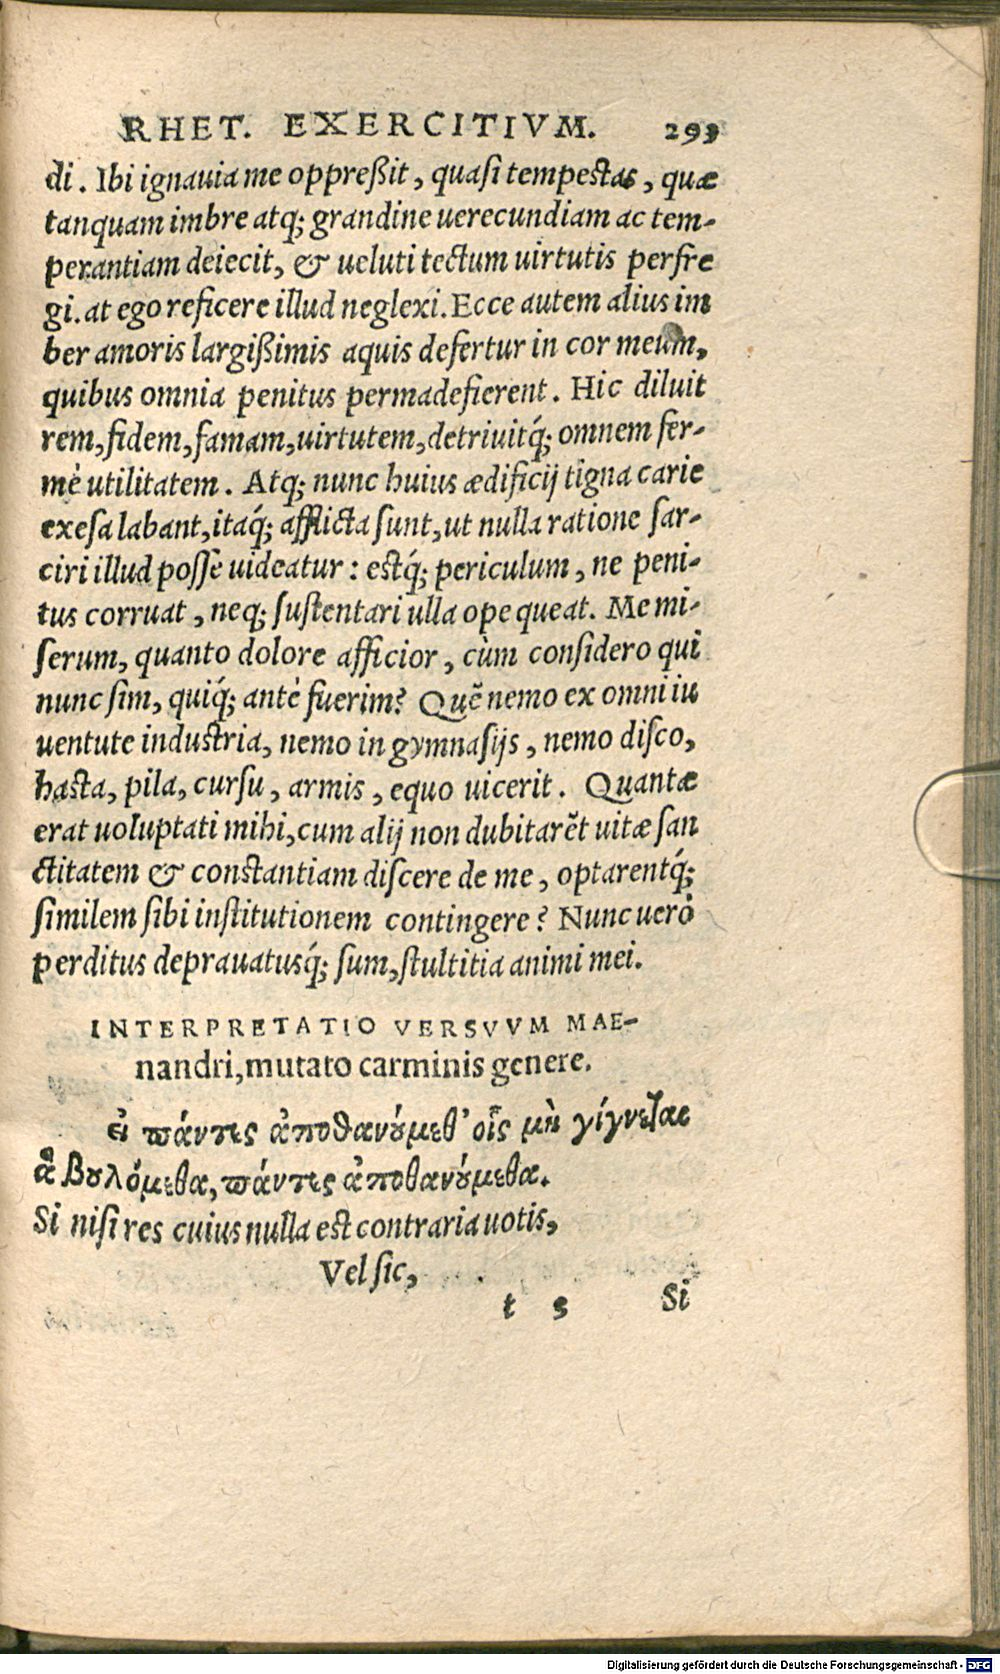 RHET. EXERCITIVM. 293
di. Ibi ignauia me oppreßit, quasi tempestas, quæ
tanquam imbre atq; grandine uerecundiam ac tem-
perantiam deiecit, & ueluti tectum uirtutis perfre
gi. at ego reficere illud neglexi. Ecce autem alius im
ber amoris largißimis aquis defertur in cor meum,
quibus omnia penitus permadefierent. Hic diluit
rem, fidem, famam, uirtutem, detriuitq́; omnem fer-
mè utilitatem. Atq; nunc huius ædificij tigna carie
exesa labant, itaq́; afflicta sunt, ut nulla ratione sar-
ciri illud posse uideatur: estq́; periculum, ne peni-
tus corruat, neq; sustentari ulla ope queat. Me mi-
serum, quanto dolore afficior, cùm considero qui
nunc sim, quiq́; antè fuerim? Quẽ nemo ex omni iu
uentute industria, nemo in gymnasijs, nemo disco,
hasta, pila, cursu, armis, equo uicerit. Quantæ
erat uoluptati mihi, cum alij non dubitarẽt uitæ san
ctitatem & constantiam discere de me, optarentq́;
similem sibi institutionem contingere? Nunc uerò
perditus deprauatusq́; sum, stultitia animi mei.
INTERPRETATIO VERSVVM MAE-
nandri, mutato carminis genere.
εἰ πάντες ἀποθανούμεθ' οἷς μὴ γίγνεται
ἃ βουλόμεθα, πάντες ἀποθανούμεθα.
Si nisi res cuius nulla est contraria uotis,
Vel sic,
t 5 Si
Digitalisierung gefördert durch die Deutsche Forschungsgemeinschaft - DFG